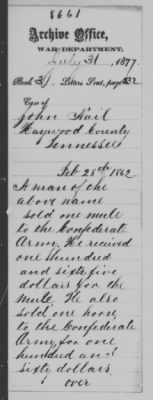 8661
Archive Office,
WAR DEPARTMENT,
July 31, 1877.
Book 31. Letters Sent, page 132
Case of
John Nail
Haywood County
Tennessee
Feb 25th 1862
A man of the
above name
sold one mule
to the Confederate
Army. He received
one hundred
and sixty five
dollars for the
mule. He also
sold one horse
to the Confederate
Army for one
hundred and
sixty dollars.
over